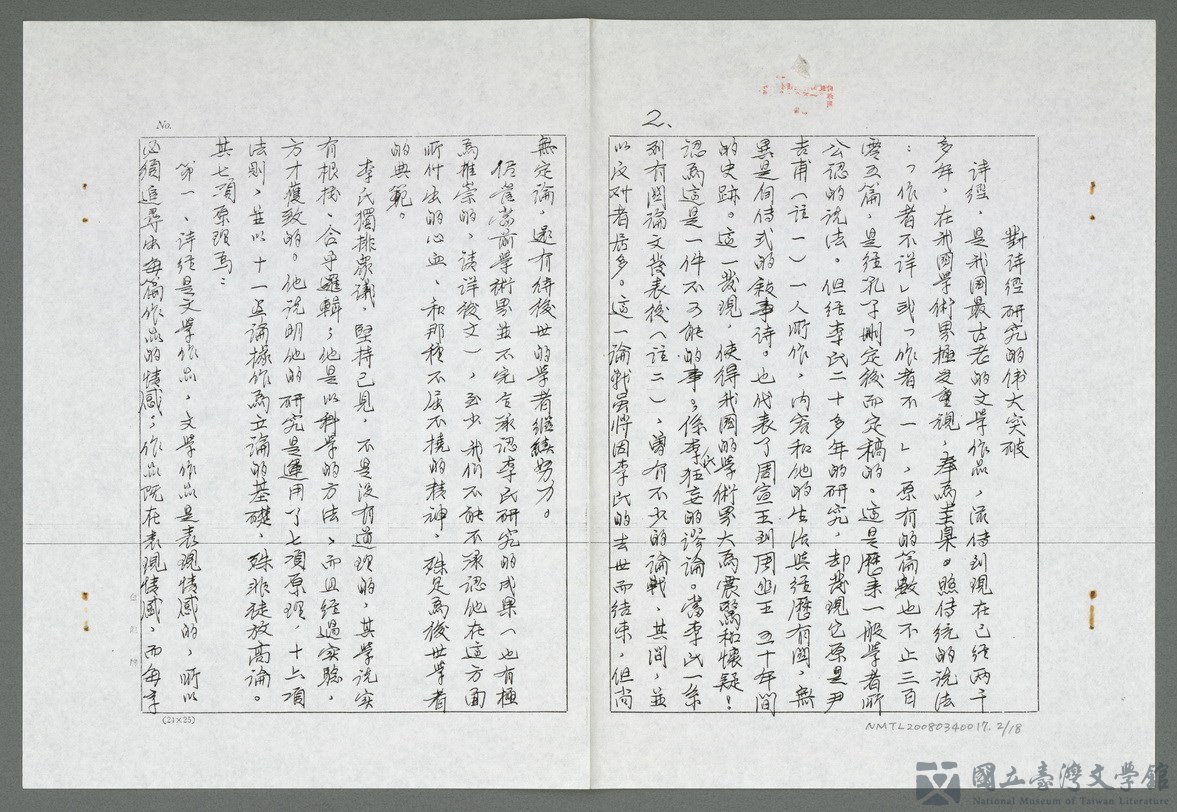 2.
對詩經研究的偉大突破
詩經，是我國最古老的文學作品，流傳到現在已經兩千
多年，在我國學術界極受重視，奉為圭臬。照傳統的說法
：「作者不詳」或「作者不一」，原有的篇數也不止三百
零五篇，是經孔子刪定後而定稿的。這是歷來一般學者所
公認的說法。但經李氏二十多年的研究，却發現它原是尹
吉甫（註一）一人所作，內容和他的生活與經歷有關，無
異是自傳式的敘事詩。也代表了周宣王到周幽王五十年間
的史跡。這一發現，使得我國的學術界大為震驚和懷疑！
認為這是一件不可能的事；係李氏狂妄的謬論。當李氏一系
列有關論文發表後（註二），曾有不少的論戰，其間，並
以反對者居多。這一論戰雖將因李氏的去世而結束，但尚
無定論，還有待後世的學者繼續努力。
儘管當前學術界並不完全承認李氏研究的成果（也有極
為推崇的，請詳後文），至少我們不能不承認他在這方面
所付出的心血、和那種不屈不撓的精神，殊足為後世學者
的典範。
李氏獨排眾議，堅持己見，不是沒有道理的，其學說實
有根據、合乎邏輯；他是以科學的方法、而且經過實驗，
方才獲致的。他說明他的研究是運用了七項原理，十六項
法則，並以十一點論據作為立論的基礎，殊非徒放高論。
其七項原理為：
第一、詩經是文學作品，文學作品是表現情感的，所以
必須追尋出每篇作品的情感；作品既在表現情感，而每章
No.
(24×25)
NMTL20080340017. 2/18
國立臺灣文學館
National Museum of Taiwan Literature